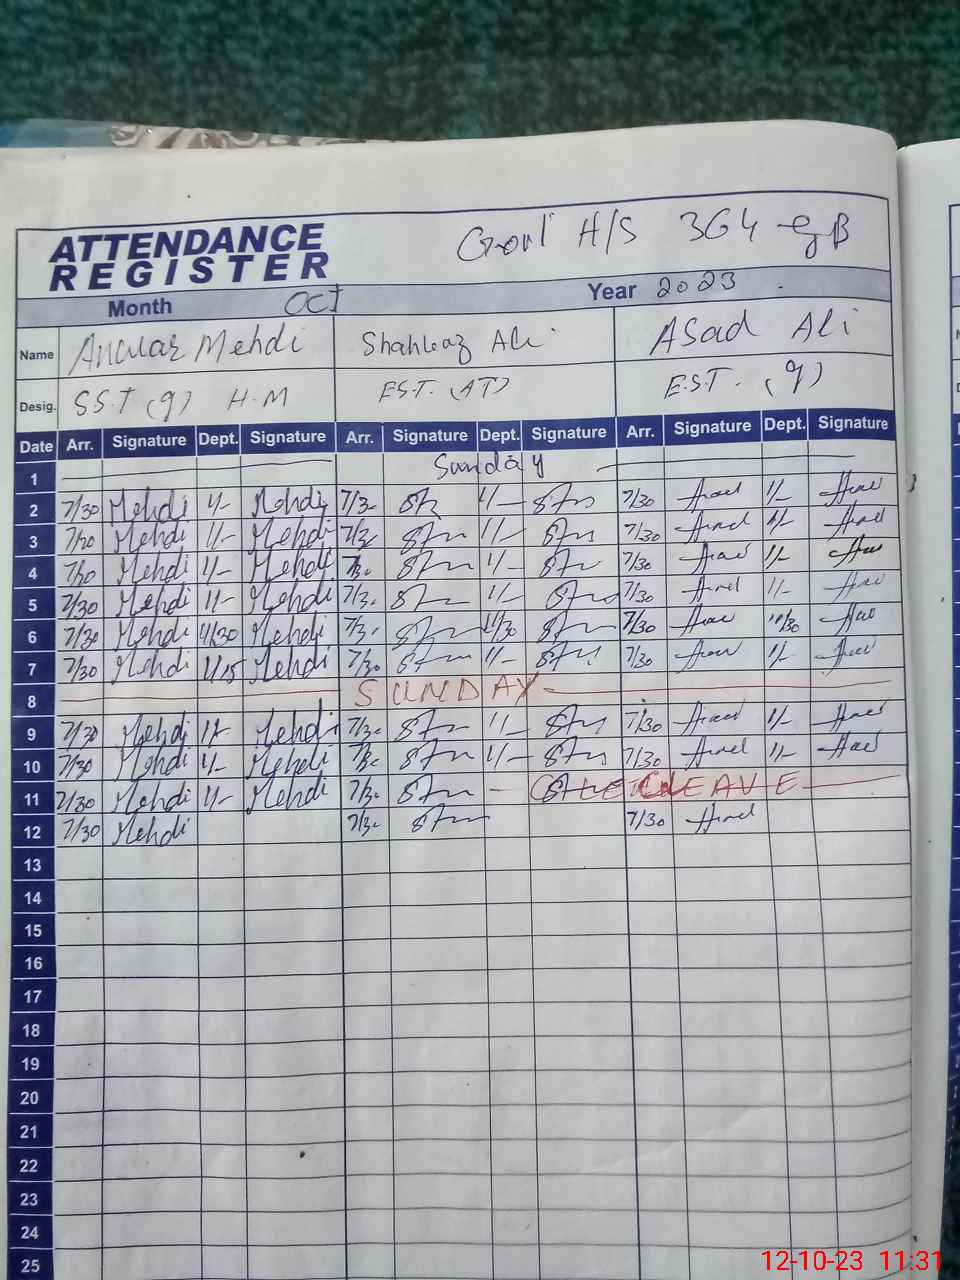 ATTENDANCE
REGISTER
Govt H/S 364 GB
Month OCT Year 2023
Name Anwar Mehdi Shahbaz Ali Asad Ali
Desig. S.S.T (g) H.M E.S.T. (AT) E.S.T. (g)
Date Arr. Signature Dept. Signature Arr. Signature Dept. Signature Arr. Signature Dept. Signature
1 Sunday
2 7/30 Mehdi 1/- Mehdi 7/30 1/- 7/30 1/-
3 7/30 Mehdi 1/- Mehdi 7/30 1/- 7/30 1/-
4 7/30 Mehdi 1/- Mehdi 7/30 1/- 7/30 1/-
5 7/30 Mehdi 1/- Mehdi 7/30 1/- 7/30 1/-
6 7/30 Mehdi 11/30 Mehdi 7/30 11/30 7/30 11/30
7 7/30 Mehdi 1/15 Mehdi 7/30 1/- 7/30 1/-
8 SUNDAY
9 7/30 Mehdi 1/- Mehdi 7/30 1/- 7/30 1/-
10 7/30 Mehdi 1/- Mehdi 7/30 1/- 7/30 1/-
11 7/30 Mehdi 1/- Mehdi 7/30 LEAVE
12 7/30 Mehdi 7/30 7/30
13
14
15
16
17
18
19
20
21
22
23
24
25
12-10-23 11:31